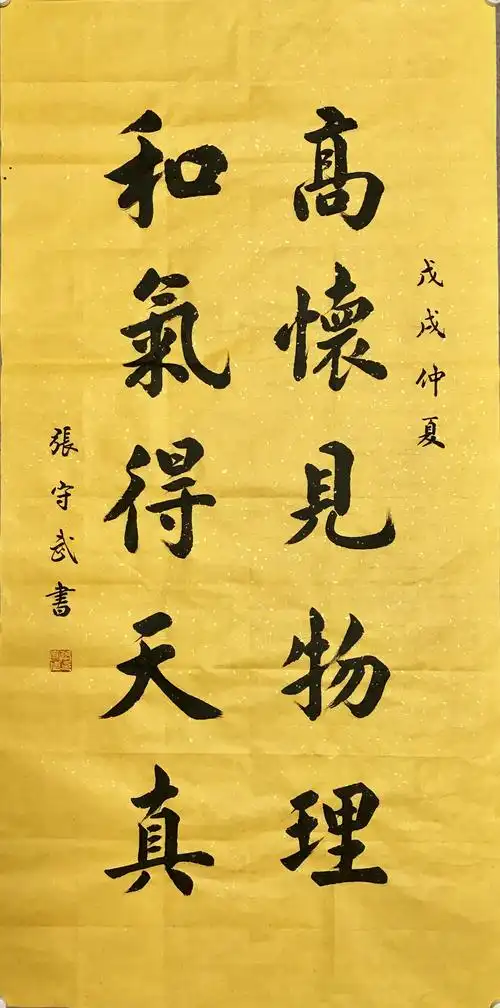 戊戌仲夏
高懷見物理
和氣得天真
張守武書